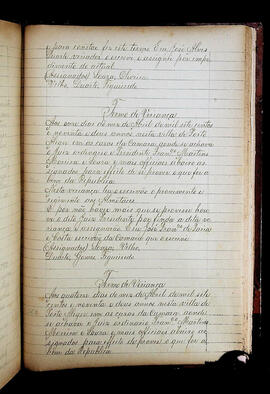 e para constar fiz este termo Eu José Alves
Duarte vereador e escrevi e assignei por impe
dimento do actual
(Assignados) Souza, Oliveira
Velho, Duarte, Figueredo
Termo de Vereança
Aos onze dias do mez de Abril de mil sete centos
e noventa e dous annos nesta villa de Porto
Alegre em as casas da Camara aonde se achava
o Juiz ordinario e Presidente Fran.co Martins
Moreira e Souza e mais officiaes abaixo as
signados para effeito de se prover o que for a
bem da Republica
Nesta vereança
E por não haver mais que se prover houve
o dito Juiz Presidente por finda a dita ve
reança e assignarão Eu José Fran.co de Farias
e Costa escrivão da Camara que escrevi
(Assignados) Souza, Velho,
Duarte, Gomes, Figueredo
Termo de Vereança
Aos quatorze dias do mez de Abril de mil sete
centos e noventa e dous annos nesta villa de
Porto Alegre em as casas da Camara aonde
se achava o Juiz ordinario Fran.co Martins
Moreira e Souza e mais officiaes abaixo as
signados para effeito de prover o que for a
bem da Republica